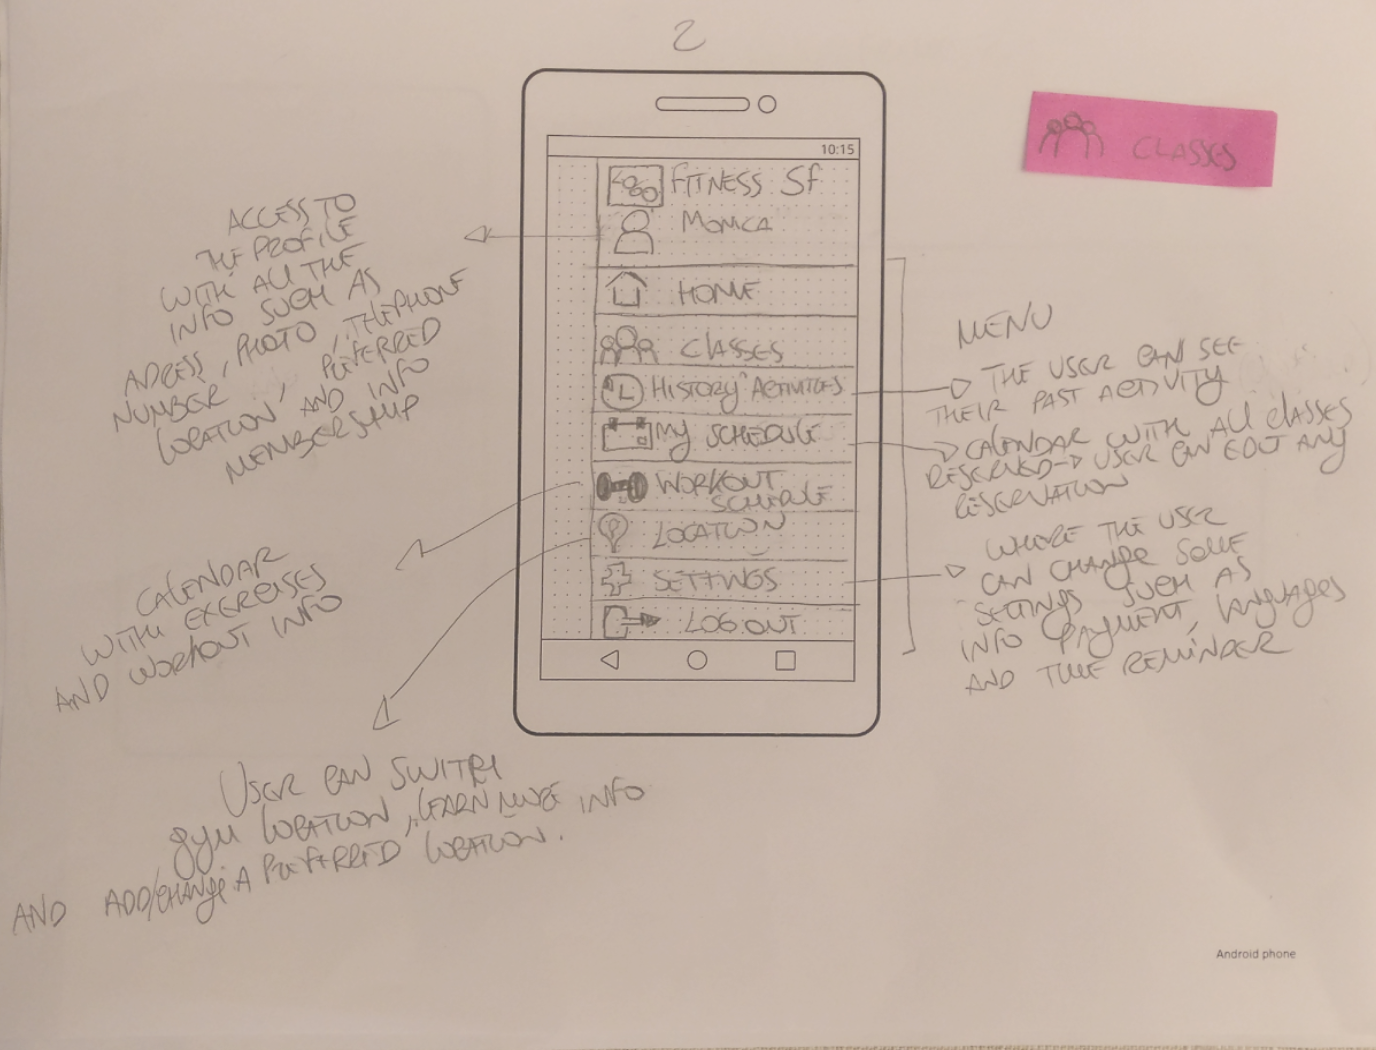 2
CLASSES
10:15
FITNESS SF
MONICA
HOME
CLASSES
HISTORY ACTIVITIES
MY SCHEDULE
WORKOUT
SCHEDULE
LOCATION
SETTINGS
LOG OUT
ACCESS TO
THE PROFILE
WITH ALL THE
INFO SUCH AS
ADRESS, PHOTO, TELEPHONE
NUMBER, PREFERRED
LOCATION AND INFO
MEMBERSHIP
CALENDAR
WITH EXERCISES
AND WORKOUT INFO
USER CAN SWITCH
gym LOCATION, LEARN MORE INFO
AND ADD/CHANGE A PREFERRED LOCATION.
MENU
THE USER CAN SEE
THEIR PAST ACTIVITY
CALENDAR WITH ALL CLASSES
RESERVED → USER CAN EDIT ANY
RESERVATION
WHERE THE USER
CAN CHANGE SOME
SETTINGS SUCH AS
INFO PAYMENT, LANGUAGES
AND TIME REMINDER
Android phone